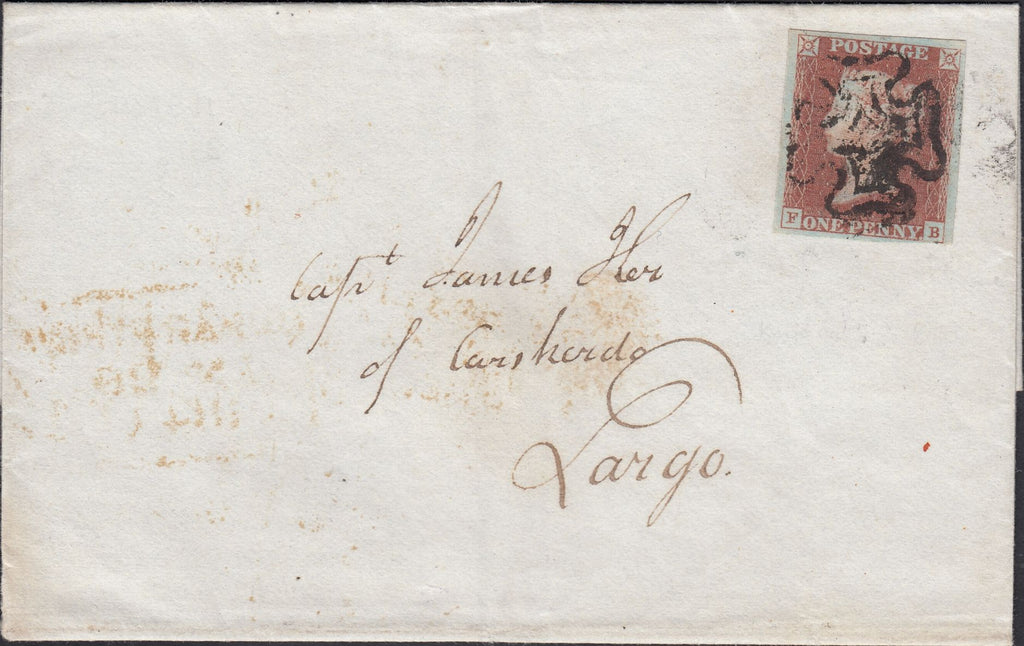 POSTAGE
F ONE PENNY B
Capt James Her
of Carskerdo
Largo.